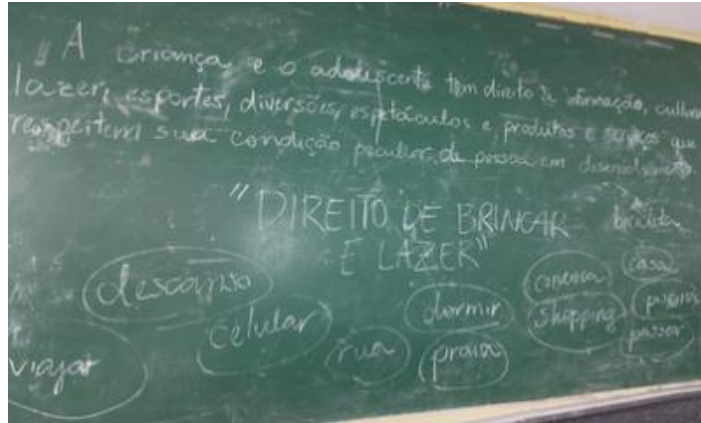 "A criança e o adolescente tem direito a informação, cultura
lazer, esportes, diversões, espetáculos e produtos e serviços que
respeitem sua condição peculiar de pessoa em desenvolvimento.
"DIREITO DE BRINCAR
E LAZER"
descanso
cinema
casa
celular
dormir
shopping
piscina
viajar
rua
praia
passear